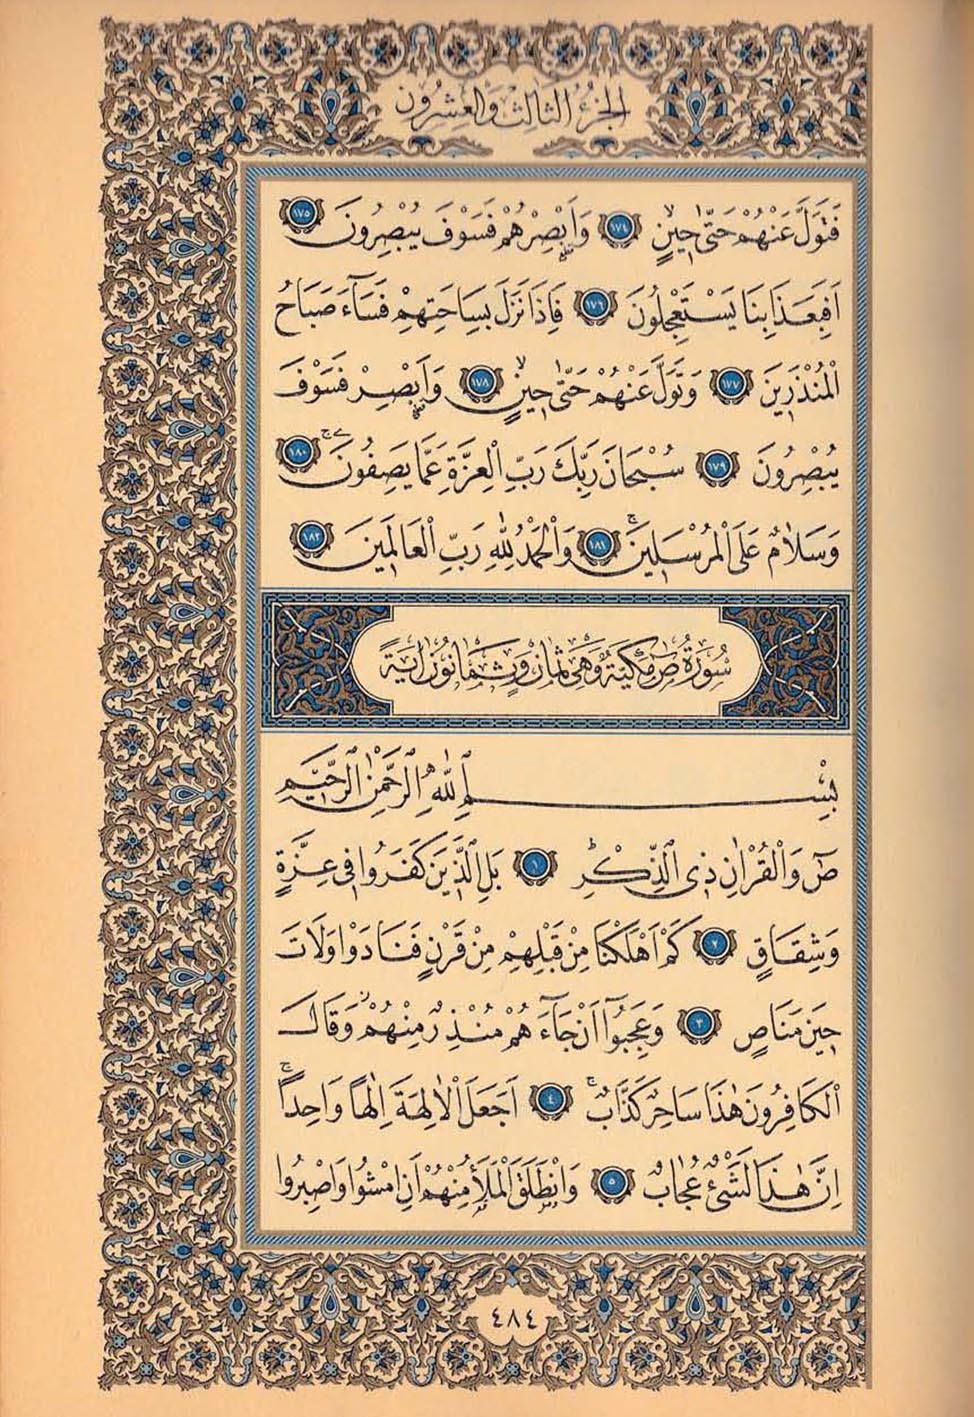 الجزء الثالث والعشرون
فَتَوَلَّ عَنْهُمْ حَتّٰى حٖينٍۙ ١٧٤ وَاَبْصِرْهُمْ فَسَوْفَ يُبْصِرُونَ ١٧٥
اَفَبِعَذَابِنَا يَسْتَعْجِلُونَ ١٧٦ فَاِذَا نَزَلَ بِسَاحَتِهِمْ فَسَٓاءَ صَبَاحُ
الْمُنْذَرٖينَ ١٧٧ وَتَوَلَّ عَنْهُمْ حَتّٰى حٖينٍۙ ١٧٨ وَاَبْصِرْ فَسَوْفَ
يُبْصِرُونَ ١٧٩ سُبْحَانَ رَبِّكَ رَبِّ الْعِزَّةِ عَمَّا يَصِفُونَۚ ١٨٠
وَسَلَامٌ عَلَى الْمُرْسَلٖينَۚ ١٨١ وَالْحَمْدُ لِلّٰهِ رَبِّ الْعَالَمٖينَ ١٨٢
سُورَةُ صٓ مَكِّيَّةٌ وَهِيَ ثَمَانٌ وَثَمَانُونَ اٰيَةً
بِسْمِ اللّٰهِ الرَّحْمٰنِ الرَّحٖيمِ
صٓ وَالْقُرْاٰنِ ذِي الذِّكْرِؕ ١ بَلِ الَّذٖينَ كَفَرُوا فٖي عِزَّةٍ
وَشِقَاقٍ ٢ كَمْ اَهْلَكْنَا مِنْ قَبْلِهِمْ مِنْ قَرْنٍ فَنَادَوْا وَلَاتَ
حٖينَ مَنَاصٍ ٣ وَعَجِبُٓوا اَنْ جَٓاءَهُمْ مُنْذِرٌ مِنْهُمْؗ وَقَالَ
الْكَافِرُونَ هٰذَا سَاحِرٌ كَذَّابٌۚ ٤ اَجَعَلَ الْاٰلِهَةَ اِلٰهًا وَاحِدًاۚ
اِنَّ هٰذَا لَشَيْءٌ عُجَابٌ ٥ وَانْطَلَقَ الْمَلَاُ مِنْهُمْ اَنِ امْشُوا وَاصْبِرُوا
٤٨٤